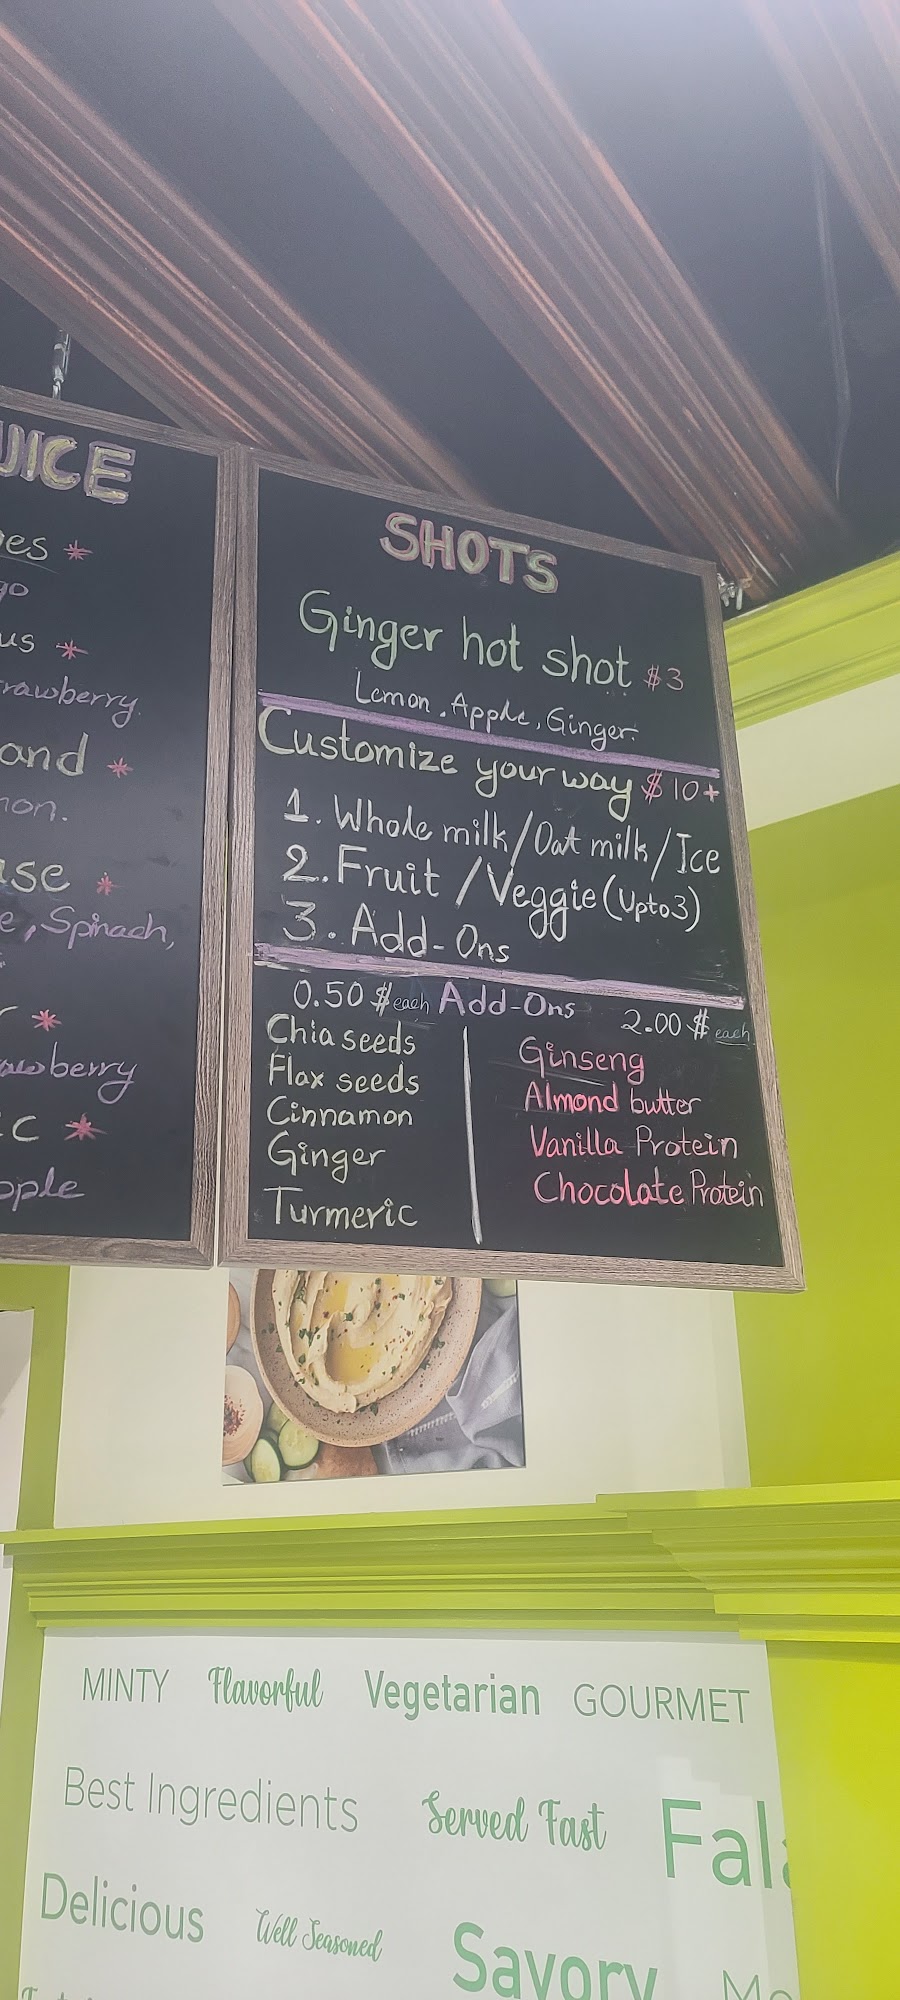 SHOTS
Ginger hot shot $3
Lemon, Apple, Ginger.
Customize your way $10+
1. Whole milk/Oat milk/Ice
2. Fruit/Veggie (Upto3)
3. Add-Ons
0.50 $ each Add-Ons 2.00 $ each
Chia seeds
Flax seeds
Cinnamon
Ginger
Turmeric
Ginseng
Almond butter
Vanilla Protein
Chocolate Protein
, Spinach,
MINTY Flavorful Vegetarian GOURMET
Best Ingredients Served Fast
Delicious Well Seasoned Savory